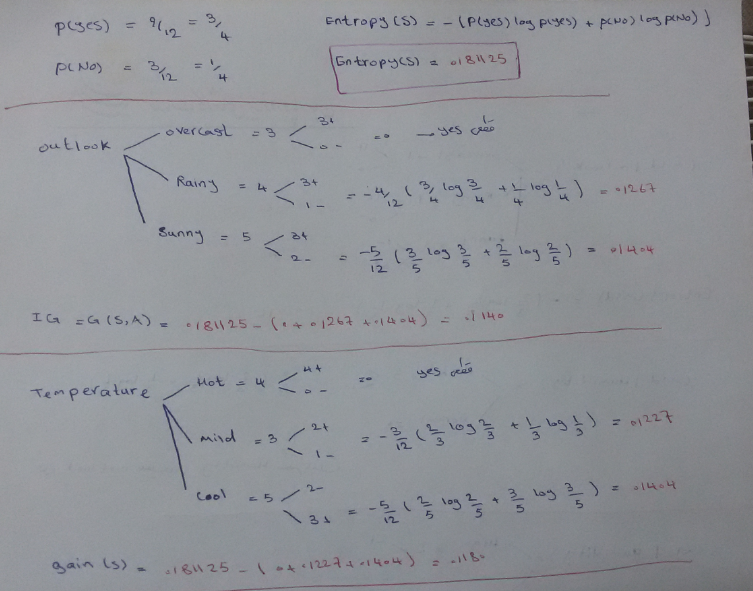 P(yes) = 9/12 = 3/4
Entropy(S) = -(P(yes) log p(yes) + p(No) log p(No))
P(No) = 3/12 = 1/4
Entropy(S) = .81125
outlook
overcast = 3 3+ 0- =0 → yes
Rainy = 4 3+ 1- = -4/12 (3/4 log 3/4 + 1/4 log 1/4) = .267
Sunny = 5 3+ 2- = -5/12 (3/5 log 3/5 + 2/5 log 2/5) = .404
IG = G(S,A) = .81125 - (0 + .267 + .404) = .140
Temperature
Hot = 4 4+ 0- =0 yes
mild = 3 2+ 1- = -3/12 (2/3 log 2/3 + 1/3 log 1/3) = .227
Cool = 5 2- 3+ = -5/12 (2/5 log 2/5 + 3/5 log 3/5) = .404
gain(s) = .81125 - (0 + .227 + .404) = .180